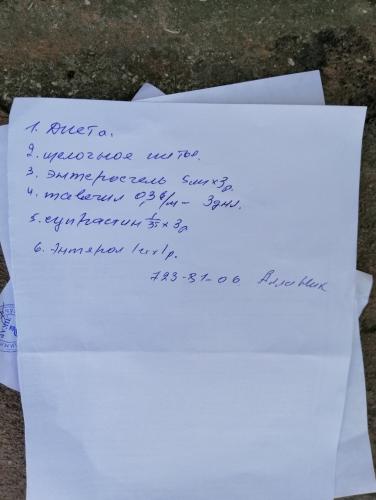 1. Диета.
2. щелочное питье.
3. энтеросгель 5мл х 3р
4. тавегил 0,3 в/м – 3 дня.
5. супрастин х 3р
6. Энтерол 1 х 1р.
723-81-06